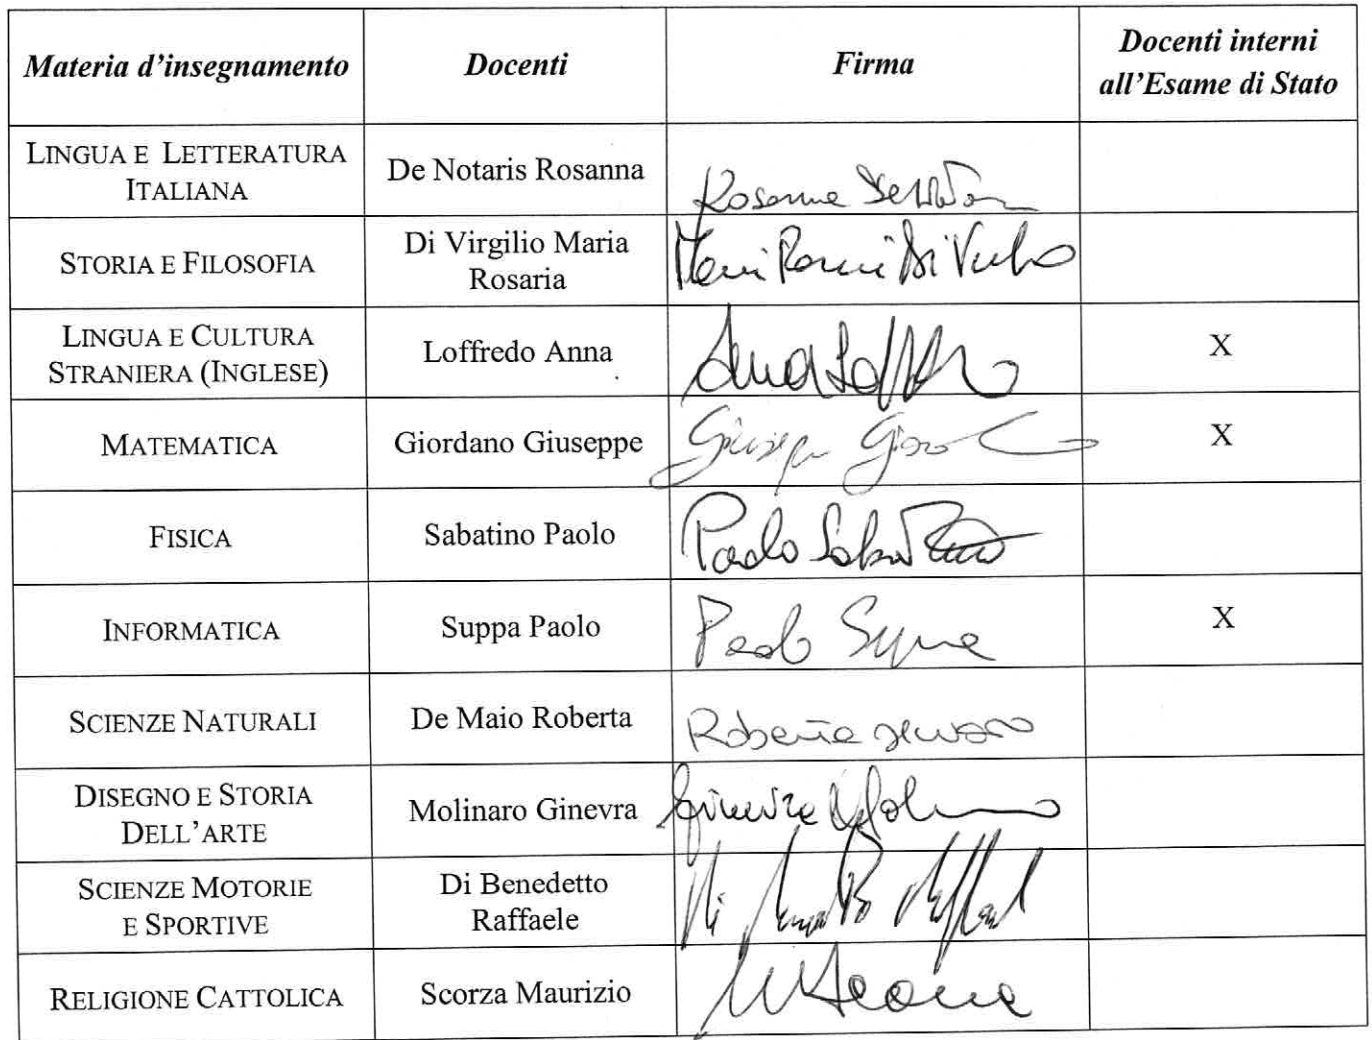 Materia d'insegnamento Docenti Firma Docenti interni
all'Esame di Stato
LINGUA E LETTERATURA
ITALIANA
De Notaris Rosanna
Rosanna De Notaris
STORIA E FILOSOFIA
Di Virgilio Maria
Rosaria
LINGUA E CULTURA
STRANIERA (INGLESE)
Loffredo Anna
Anna Loffredo
X
MATEMATICA
Giordano Giuseppe
Giuseppe
X
FISICA
Sabatino Paolo
Paolo Sabatino
INFORMATICA
Suppa Paolo
Paolo Suppa
X
SCIENZE NATURALI
De Maio Roberta
Roberta De Maio
DISEGNO E STORIA
DELL'ARTE
Molinaro Ginevra
Ginevra
SCIENZE MOTORIE
E SPORTIVE
Di Benedetto
Raffaele
RELIGIONE CATTOLICA
Scorza Maurizio